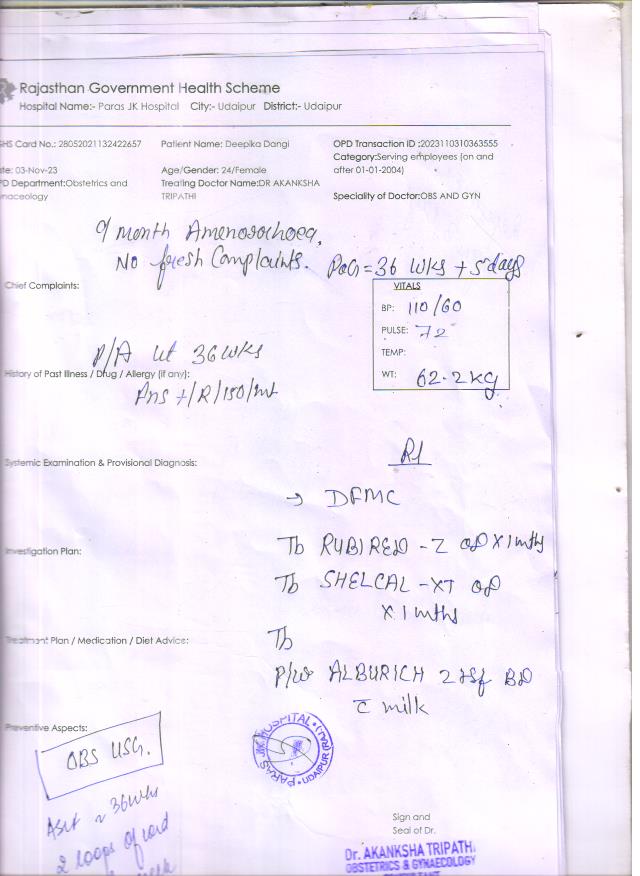 Rajasthan Government Health Scheme
Hospital Name:- Paras JK Hospital City:- Udaipur District:- Udaipur
GHS Card No.: 28052021132422657 Patient Name: Deepika Dangi OPD Transaction ID :2023110310363555
Category:Serving employees (on and after 01-01-2004)
te: 03-Nov-23 Age/Gender: 24/Female
PD Department:Obstetrics and
naceology
Treating Doctor Name:DR AKANKSHA
TRIPATHI
Speciality of Doctor:OBS AND GYN
9 month Amenorrhoea,
No fresh Complaints. POG = 36 wks + 5 days
Chief Complaints:
VITALS
BP: 110/60
PULSE: 72
TEMP:
WT: 62.2 kg
P/A ut 36 wks
History of Past Illness / Drug / Allergy (if any):
+/R/150/mt
Rx
Systemic Examination & Provisional Diagnosis:
→ DFMC
Tb RUBIRED - Z OD X 1 mths
Investigation Plan:
Tb SHELCAL - XT OD
X 1 mths
Tb
Treatment Plan / Medication / Diet Advice:
P/w ALBURICH 2 tsf BD
c milk
Preventive Aspects:
OBS USG.
~ 36 wks
2 loops of cord
PARAS JK HOSPITAL
UDAIPUR (RAJ.)
Sign and
Seal of Dr.
Dr. AKANKSHA TRIPATHI
OBSTETRICS & GYNAECOLOGY